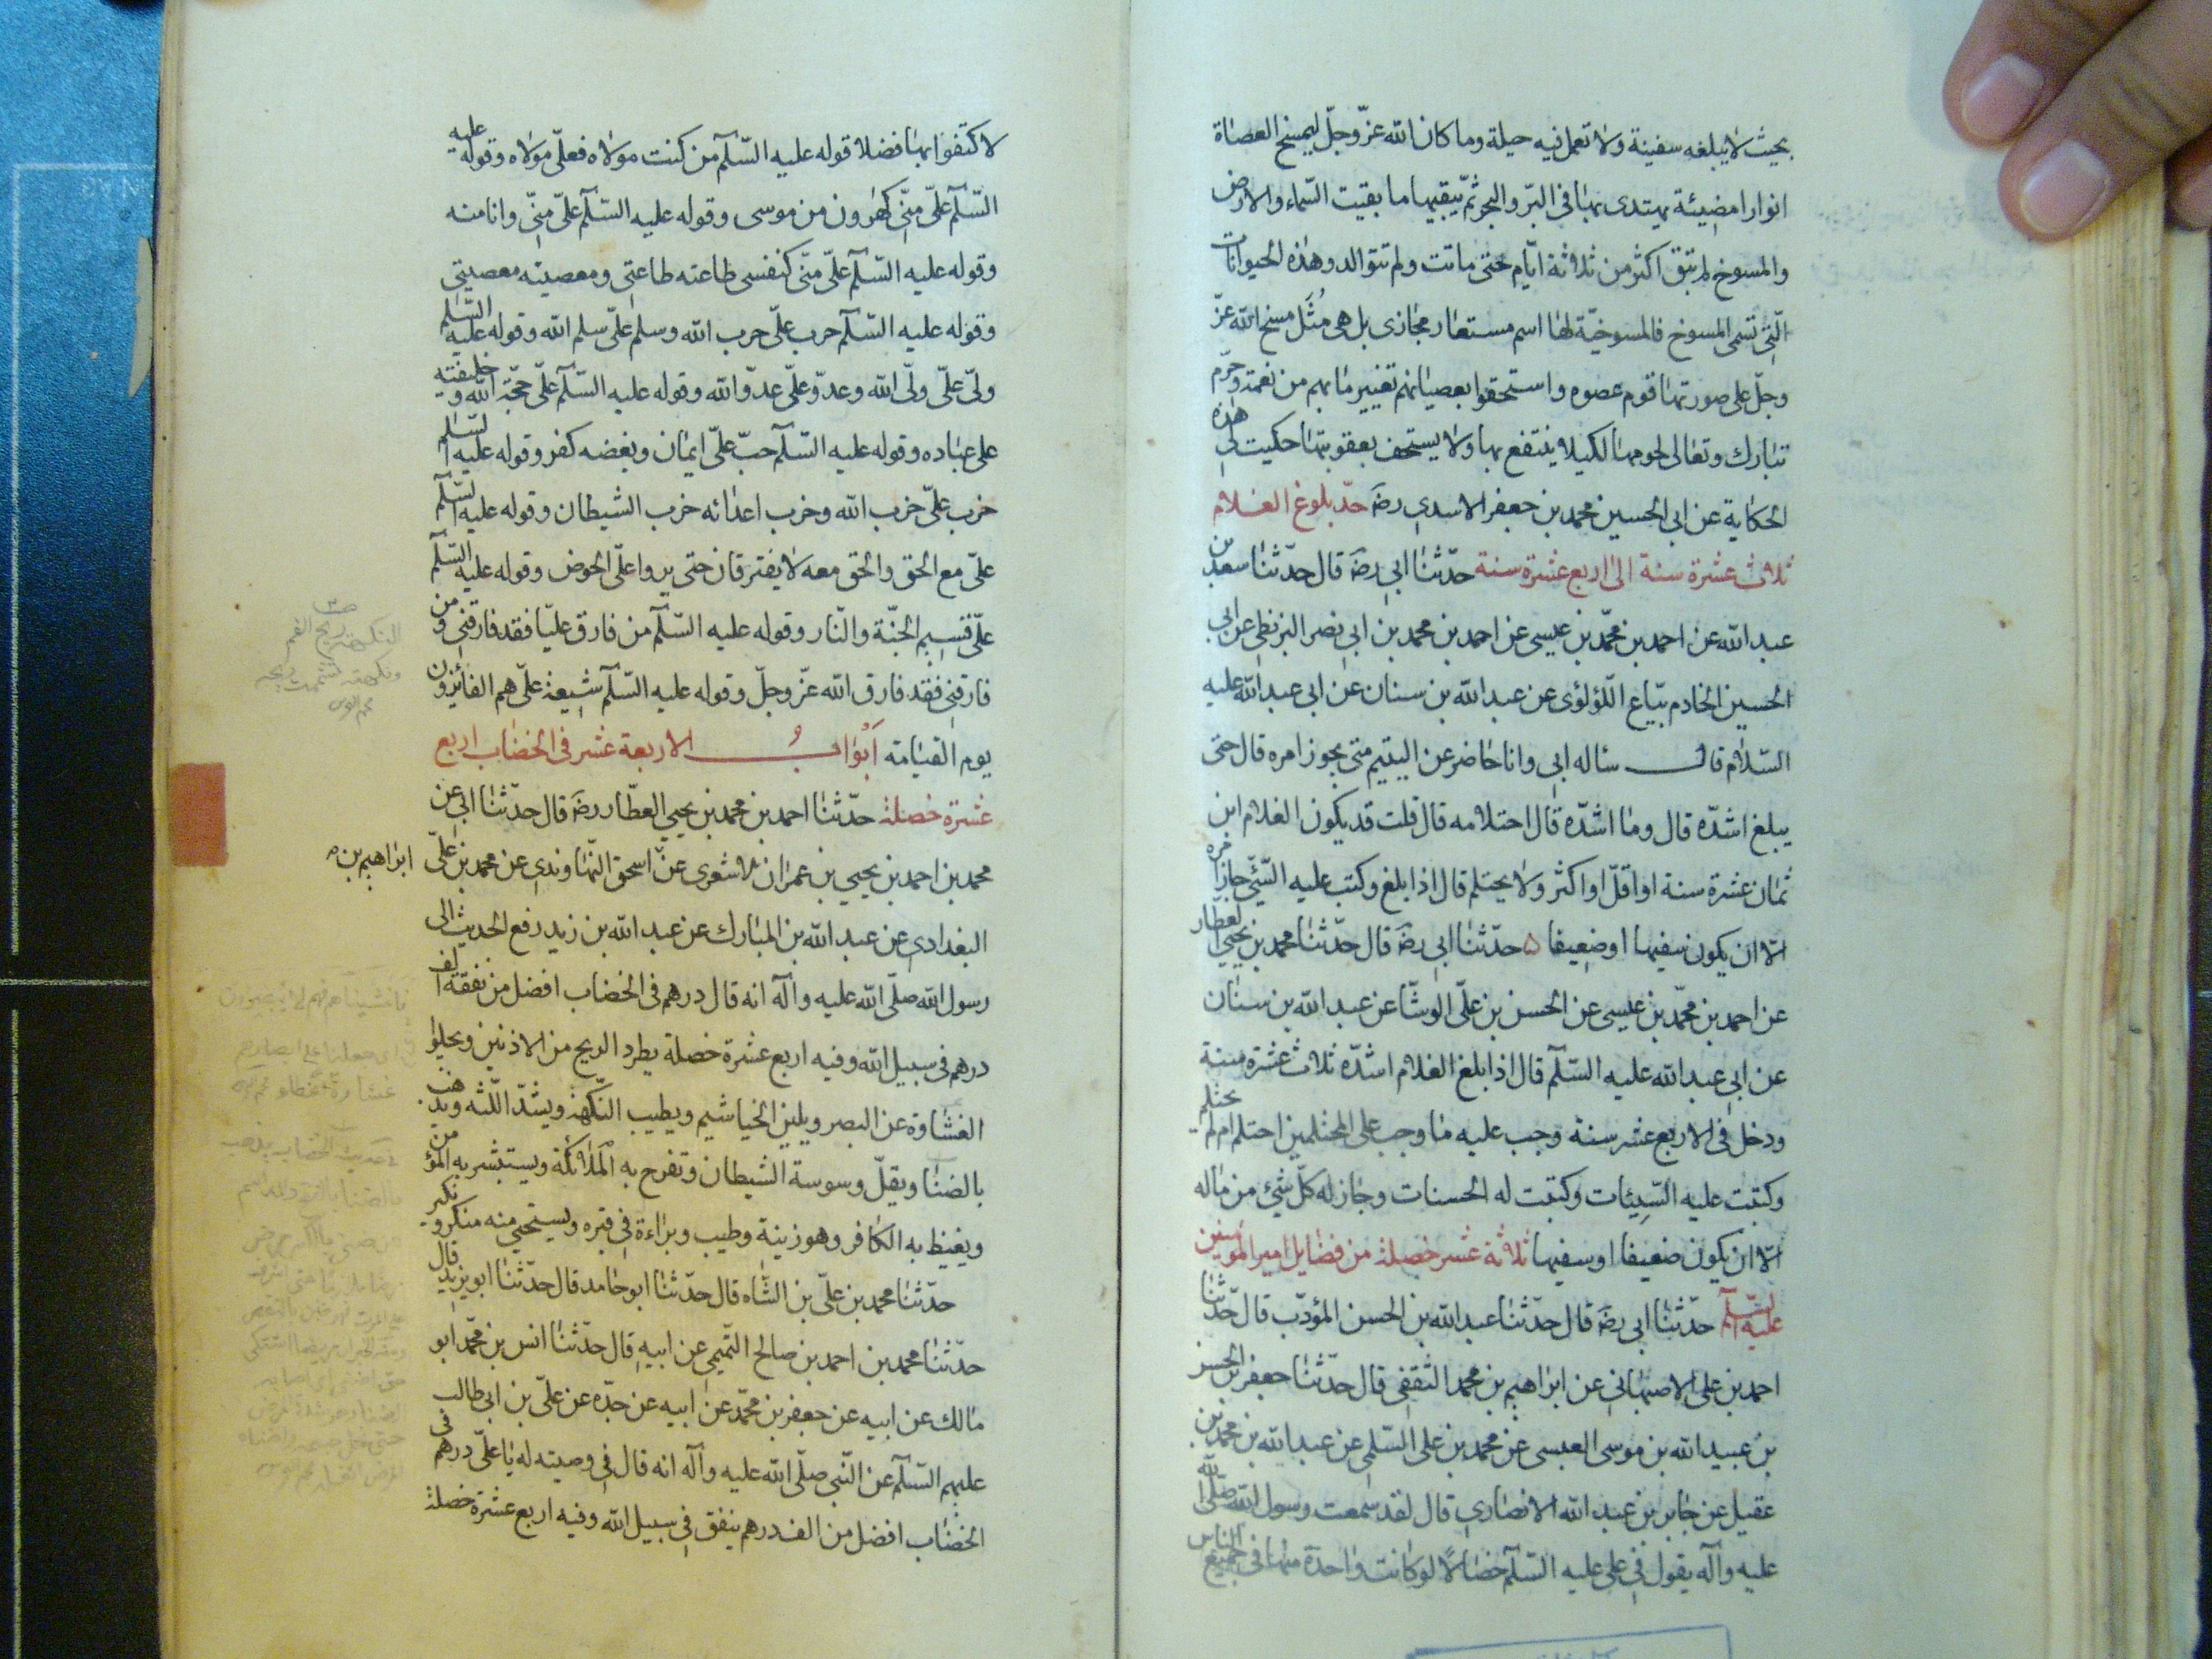 بحيث لا يبلغه سفينة ولا تعمل فيه حيلة وما كان الله عزّ وجلّ ليمسخ العصاة
انوارا مضيئة يهتدى بها فى البرّ والبحر ثمّ يبقيها ما بقيت السّماء والارض
والمسوخ لم تبق اكثر من ثلاثة ايّام حتى ماتت ولم تتوالد وهذه الحيوانات
الّتى تسمى المسوخ فالمسوخيّة لها اسم مستعار مجازى بل هى مُثَل مسخ الله عزّ
وجلّ على صورتها قوم عصوه واستحقوا بعصيانهم تغيير ما بهم من نعمة وحرّم
تبارك وتعالى لحومها لكيلا ينتفع بها ولا يستخف بعقوبتها حكيت لى هذه
الحكاية عن ابى الحسين محمد بن جعفر الاسدى رضَ حدّ بلوغ الغلام
ثلاث عشرة سنة الى اربع عشرة سنة حدّثنا ابى رضَ قال حدّثنا سعد بن
عبد الله عن احمد بن محمّد بن عيسى عن احمد بن محمد بن ابى نصر البزنطى عن ابى
الحسين الخادم بيّاع اللّؤلؤى عن عبد الله بن سنان عن ابى عبد الله عليه
السّلام قال ساله ابى وانا حاضر عن اليتيم متى يجوز امره قال حتى
يبلغ اشدّه قال وما اشدّه قال احتلامه قال قلت قد يكون الغلام ابن
ثمان عشرة سنة او اقلّ او اكثر ولا يحتلم قال اذا بلغ وكتب عليه الشّىء جاز امره
الّا ان يكون سفيها او ضعيفا ۵ حدّثنا ابى رضَ قال حدّثنا محمد بن يحيى العطار
عن احمد بن محمّد بن عيسى عن الحسن بن علىّ الوشّا عن عبد الله بن سنان
عن ابى عبد الله عليه السّلم قال اذا بلغ الغلام اشدّه ثلاث عشرة سنة
ودخل فى الاربع عشر سنة وجب عليه ما وجب على المحتلمين احتلم ام لم يحتلم
وكتبت عليه السّيئات وكتبت له الحسنات وجاز له كلّ شىء من ماله
الّا ان يكون ضعيفا او سفيها ثلاثة عشر خصلة من فضايل امير المؤمنين
عليه السّلم حدّثنا ابى رضَ قال حدّثنا عبد الله بن الحسن المؤدّب قال حدّثنا
احمد بن على الاصبهانى عن ابراهيم بن محمد الثقفى قال حدّثنا جعفر بن الحسن
بن عبيد الله بن موسى العبسى عن محمد بن على السّلمى عن عبد الله بن محمد بن
عقيل عن جابر بن عبد الله الانصارى قال لقد سمعت رسول الله صلّى الله
عليه وآله يقول فى على عليه السّلم خصالًا لو كانت واحدة منها فى جميع الناس
لاكتفوا بها فضلا قوله عليه السّلم من كنت مولاه فعلىّ مولاه وقوله عليه
السّلم علىّ منّى كهرون من موسى وقوله عليه السّلم علىّ منّى وانا منه
وقوله عليه السّلم علىّ منّى كنفسى طاعته طاعتى ومعصيته معصيتى
وقوله عليه السّلم حرب علىّ حرب الله وسلم علىّ سلم الله وقوله عليه السّلم
ولىّ علىّ ولىّ الله وعدوّ علىّ عدوّ الله وقوله عليه السّلم علىّ حجّة الله وخليفته
على عباده وقوله عليه السّلم حبّ علىّ ايمان وبغضه كفر وقوله عليه السّلم
حزب علىّ حزب الله وحزب اعدائه حزب الشيطان وقوله عليه السّلم
علىّ مع الحق والحق معه لا يفترقان حتى يردا على الحوض وقوله عليه السّلم
علىّ قسيم الجنّة والنّار وقوله عليه السّلم من فارق عليّا فقد فارقنى ومن
فارقنى فقد فارق الله عزّ وجلّ وقوله عليه السّلم شيعة علىّ هم الفائزون
يوم القيامة اَبْوابُ الاربعة عشر فى الخضاب اربع
عشرة خصلة حدّثنا احمد بن محمد بن يحيى العطّار رضَ قال حدّثنا ابى عن
محمد بن احمد بن يحيى بن عمران الاشعرى عن اسحق النهاوندى عن محمد بن علىّ
ابراهيم بن
البغدادى عن عبد الله بن المبارك عن عبد الله بن زيد رفع الحديث الى
رسول الله صلّى الله عليه وآله انه قال درهم فى الخضاب افضل من نفقة الف
درهم فى سبيل الله وفيه اربع عشرة خصلة يطرد الريح من الاذنين ويجلو
الغشاوة عن البصر ويلين الخياشيم ويطيب النّكهة ويشدّ اللّثه ويذهب
بالضنا ويقلّ وسوسة الشيطان وتفرح به الملائكة ويستبشر به المؤمن
ويغيظ به الكافر وهو زينة وطيب وبراءة فى قبره ويستحيى منه منكر ونكير
حدّثنا محمد بن علىّ بن الشّاه قال حدّثنا ابو حامد قال حدّثنا ابو يزيد قال
حدّثنا محمد بن احمد بن صالح التّميمى عن ابيه قال حدّثنا انس بن محمّد ابو
مالك عن ابيه عن جعفر بن محمّد عن ابيه عن جدّه عن علىّ بن ابى طالب
عليهم السّلم عن النّبى صلّى الله عليه وآله انه قال فى وصيته له يا علىّ درهم فى
الخضاب افضل من الف درهم ينفق فى سبيل الله وفيه اربع عشرة خصلة
النكهة ريح الفم